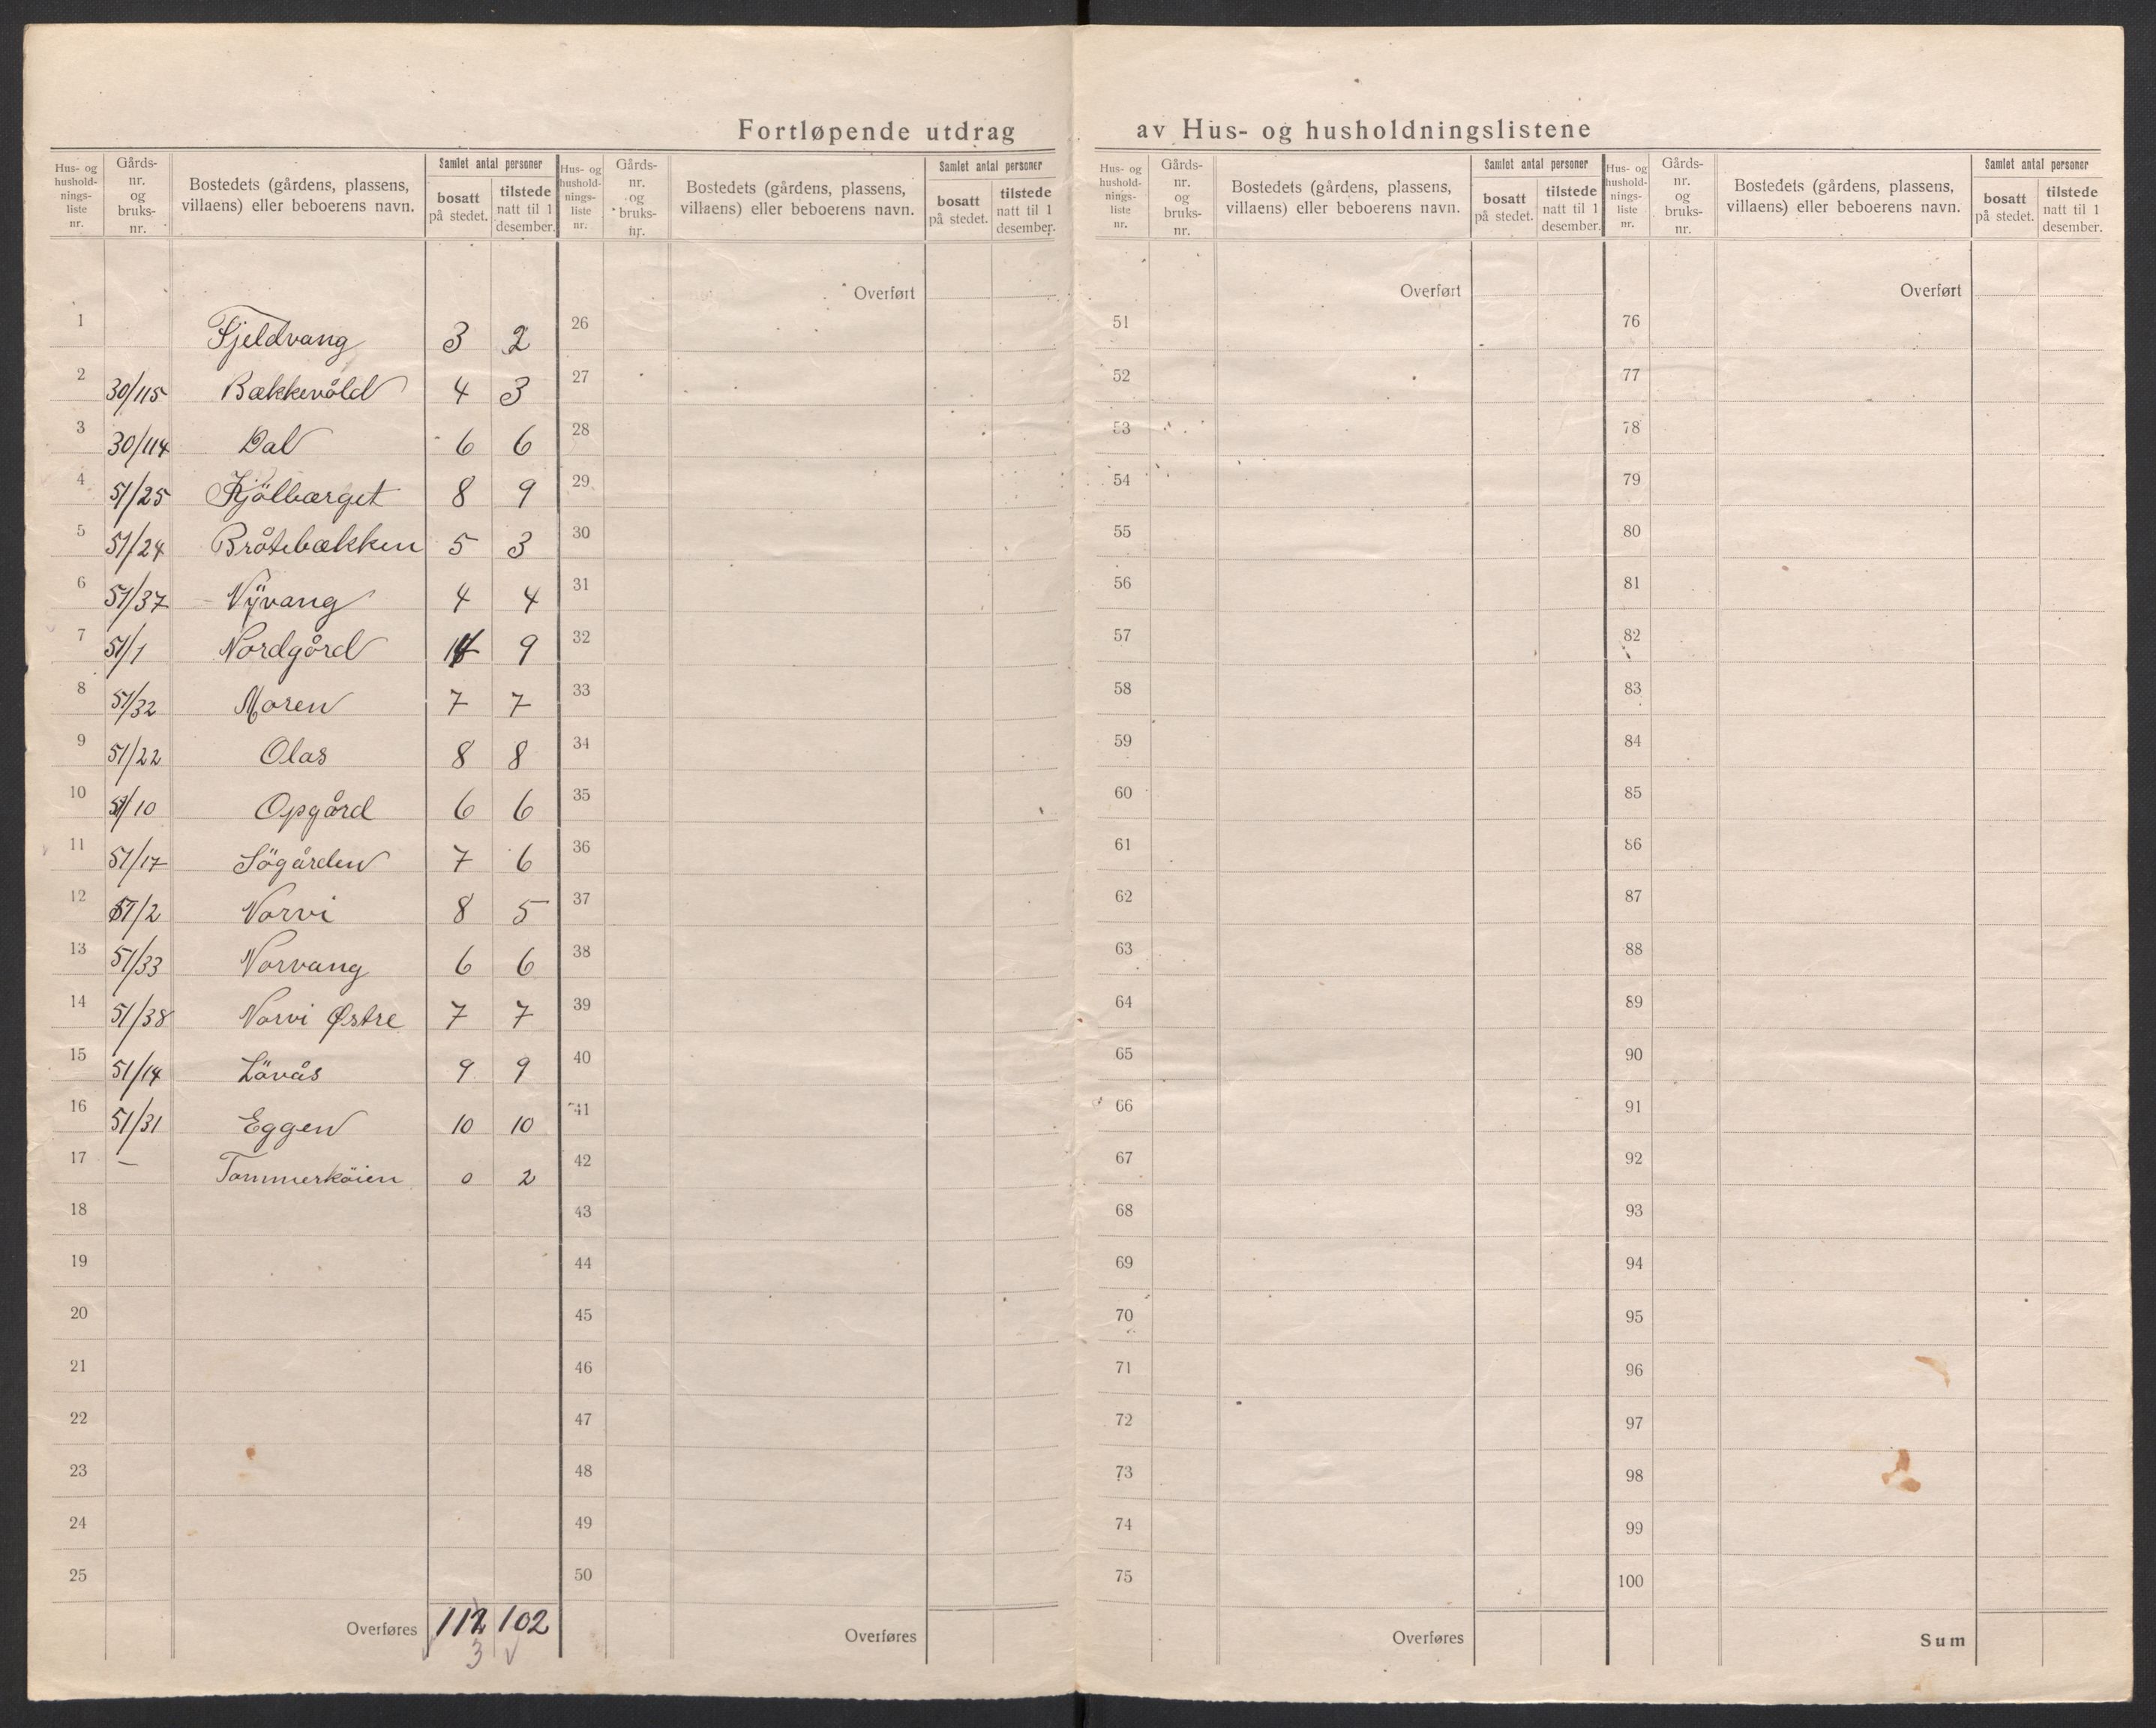 Fortløpende utdrag av Hus- og husholdningslistene
Hus- og husholdningsliste nr. Gårds-nr. og bruks-nr. Bostedets (gårdens, plassens, villaens) eller beboerens navn. Samlet antal personer bosatt på stedet. tilstede natt til 1 desember.
Hus- og husholdningsliste nr. Gårds-nr. og bruks-nr. Bostedets (gårdens, plassens, villaens) eller beboerens navn. Samlet antal personer bosatt på stedet. tilstede natt til 1 desember.
Hus- og husholdningsliste nr. Gårds-nr. og bruks-nr. Bostedets (gårdens, plassens, villaens) eller beboerens navn. Samlet antal personer bosatt på stedet. tilstede natt til 1 desember.
Hus- og husholdningsliste nr. Gårds-nr. og bruks-nr. Bostedets (gårdens, plassens, villaens) eller beboerens navn. Samlet antal personer bosatt på stedet. tilstede natt til 1 desember.
Overført Overført Overført
1 Fjeldvang 3 2 26 51 76
2 30/115 Bækkevold 4 3 27 52 77
3 30/114 Dal 6 6 28 53 78
4 51/25 Kjölbærget 8 9 29 54 79
5 51/24 Bråtebækken 5 3 30 55 80
6 51/37 Nÿvang 4 4 31 56 81
7 51/1 Nordgård 9 32 57 82
8 51/32 Moren 7 7 33 58 83
9 51/22 Olas 8 8 34 59 84
10 51/10 Opgård 6 6 35 60 85
11 51/17 Sögården 7 6 36 61 86
12 51/2 Norvi 8 5 37 62 87
13 51/33 Norvang 6 6 38 63 88
14 51/38 Norvi Østre 7 7 39 64 89
15 51/14 Lövås 9 9 40 65 90
16 51/31 Eggen 10 10 41 66 91
17 — Tømmerköien 0 2 42 67 92
18 43 68 93
19 44 69 94
20 45 70 95
21 46 71 96
22 47 72 97
23 48 73 98
24 49 74 99
25 50 75 100
Overføres 112 102 Overføres Overføres Sum
3